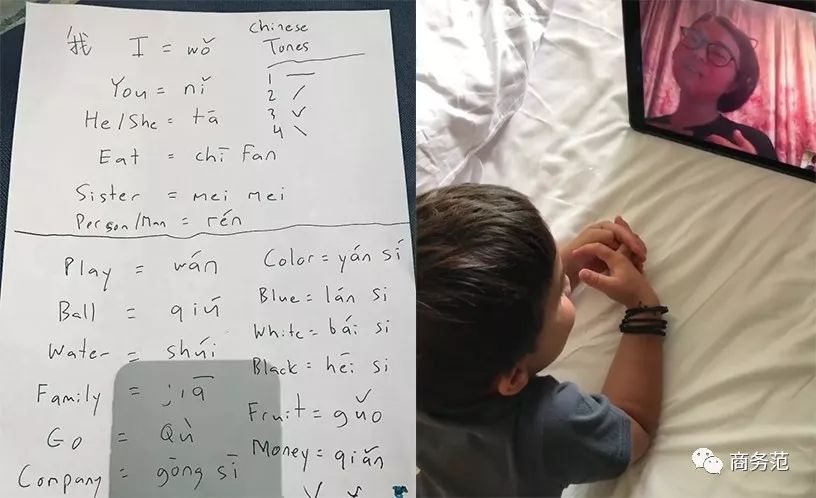 我 I = wǒ
You = nǐ
He/She = tā
Eat = chī Fan
Sister = mei mei
Person/Man = rén
Chinese
Tones
1 —
2 ╱
3 ✓
4 ╲
Play = wán
Ball = qiú
Water = shúi
Family = jiā
Go = Qù
Company = gōng sī
Color = yán sí
Blue = lán si
White = bái si
Black = hēi si
Fruit = gǔo
Money = qiǎn
商务范